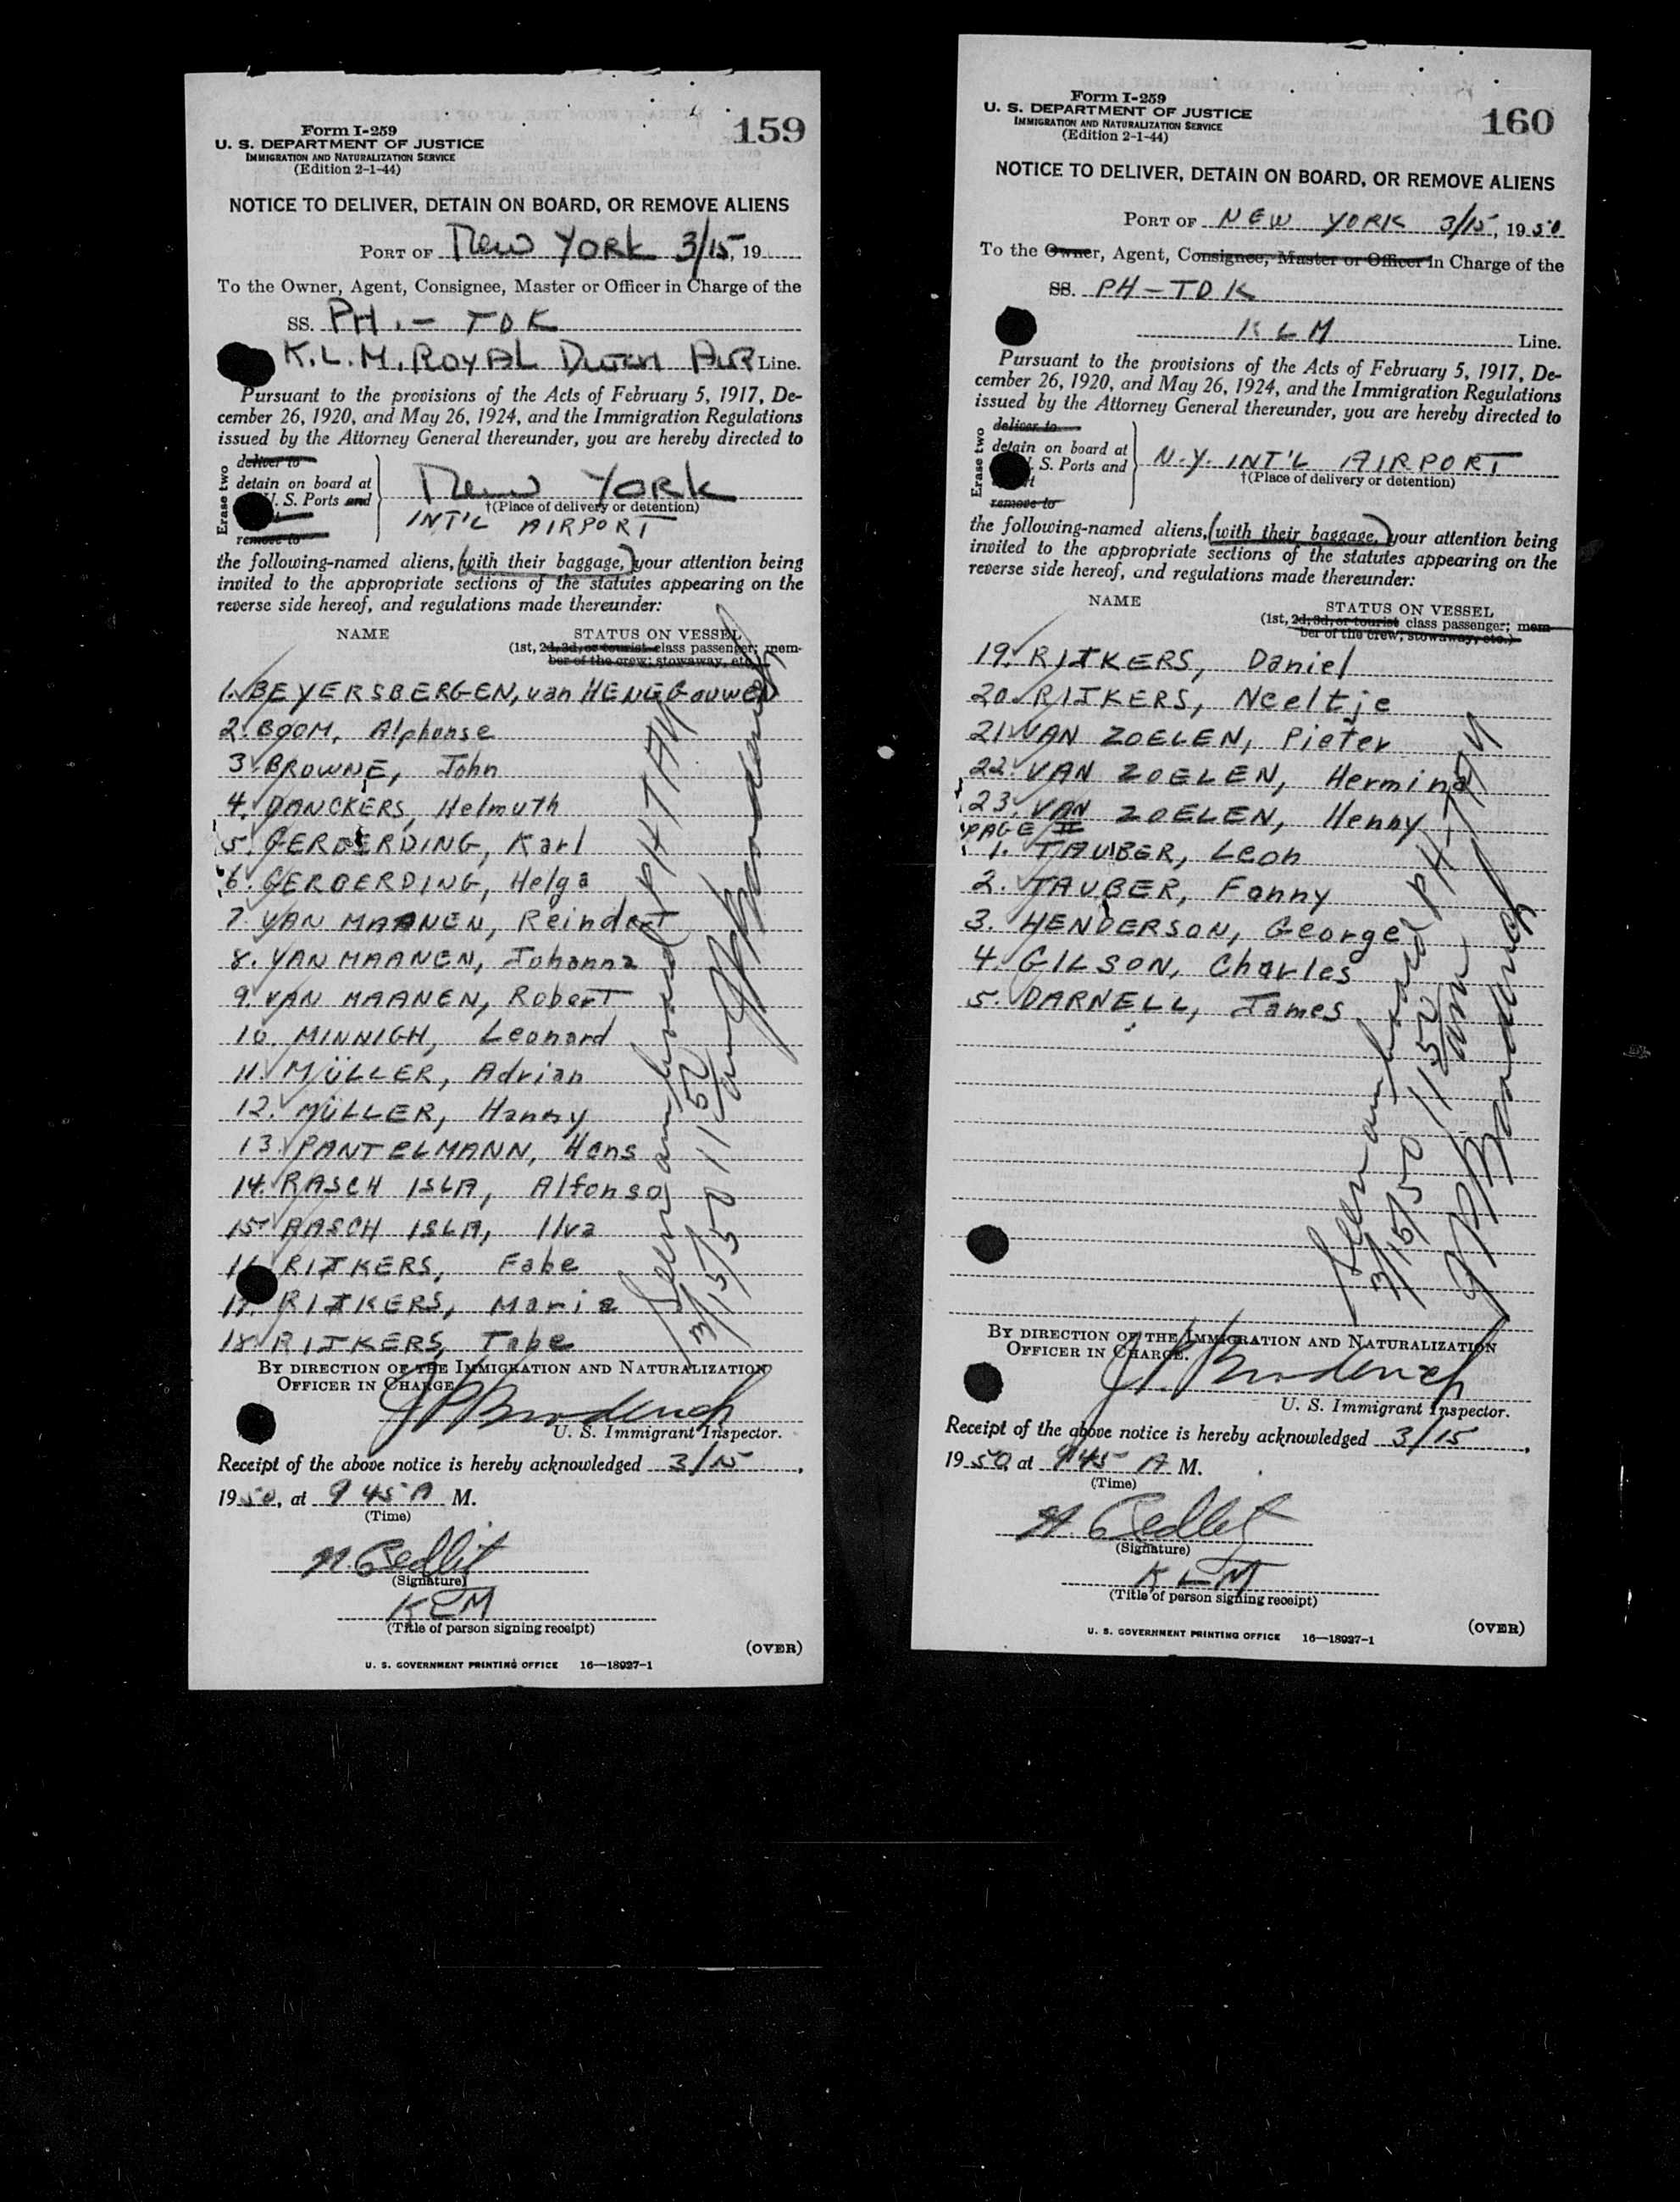 159
Form I-259
U. S. DEPARTMENT OF JUSTICE
IMMIGRATION AND NATURALIZATION SERVICE
(Edition 2-1-44)
NOTICE TO DELIVER, DETAIN ON BOARD, OR REMOVE ALIENS
PORT OF New YORK 3/15, 19
To the Owner, Agent, Consignee, Master or Officer in Charge of the
SS. PH. - TDK
K.L.M. ROYAL DUTCH AIR Line.
Pursuant to the provisions of the Acts of February 5, 1917, De-
cember 26, 1920, and May 26, 1924, and the Immigration Regulations
issued by the Attorney General thereunder, you are hereby directed to
Erase two
deliver to
detain on board at
U. S. Ports and
remove to
New YORK
†(Place of delivery or detention)
INT'L AIRPORT
the following-named aliens, (with their baggage,) your attention being
invited to the appropriate sections of the statutes appearing on the
reverse side hereof, and regulations made thereunder:
NAME
STATUS ON VESSEL
(1st, 2d, 3d, or tourist class passenger; mem-
ber of the crew; stowaway, etc.)
1. BEYERSBERGEN, van HENEGouwen
2. BOOM, Alphonse
3. BROWNE, John
4. DANCKERS, Helmuth
5. GERDERDING, Karl
6. GERDERDING, Helga
7. VAN MAANEN, Reindert
8. VAN MAANEN, Johanna
9. VAN MAANEN, Robert
10. MINNIGH, Leonard
11. MÜLLER, Adrian
12. MÜLLER, Hanny
13. PANTELMANN, Hans
14. RASCH ISLA, Alfonso
15 RASCH ISLA, Ilva
16 RIJKERS, Fabe
17. RIJKERS, Marie
18. RIJKERS, Tobe
Seen on board PH TAN
3/15/50 11 50 am JP Broderick
BY DIRECTION OF THE IMMIGRATION AND NATURALIZATION
OFFICER IN CHARGE.
JP Broderick
U. S. Immigrant Inspector.
Receipt of the above notice is hereby acknowledged 3/15,
1950, at 9 45 A M.
(Time)
(Signature)
KLM
(Title of person signing receipt)
(OVER)
U. S. GOVERNMENT PRINTING OFFICE 16—18927-1
160
Form I-259
U. S. DEPARTMENT OF JUSTICE
IMMIGRATION AND NATURALIZATION SERVICE
(Edition 2-1-44)
NOTICE TO DELIVER, DETAIN ON BOARD, OR REMOVE ALIENS
PORT OF NEW YORK 3/15, 1950
To the Owner, Agent, Consignee, Master or Officer in Charge of the
SS. PH-TDK
KLM Line.
Pursuant to the provisions of the Acts of February 5, 1917, De-
cember 26, 1920, and May 26, 1924, and the Immigration Regulations
issued by the Attorney General thereunder, you are hereby directed to
Erase two
deliver to
detain on board at
S. Ports and
remove to
N.Y. INT'L AIRPORT
†(Place of delivery or detention)
the following-named aliens, (with their baggage,) your attention being
invited to the appropriate sections of the statutes appearing on the
reverse side hereof, and regulations made thereunder:
NAME
STATUS ON VESSEL
(1st, 2d, 3d, or tourist class passenger; mem-
ber of the crew; stowaway, etc.)
19. RIJKERS, Daniel
20. RIJKERS, Neeltje
21 VAN ZOELEN, Pieter
22. VAN ZOELEN, Hermina
23. VAN ZOELEN, Henny
PAGE II
1. TAUBER, Leon
2. TAUBER, Fanny
3. HENDERSON, George
4. GILSON, Charles
5. DARNELL, James
Seen on board PH-TAN
3/15/50 11 50 am
JP Broderick
BY DIRECTION OF THE IMMIGRATION AND NATURALIZATION
OFFICER IN CHARGE.
JP Broderick
U. S. Immigrant Inspector.
Receipt of the above notice is hereby acknowledged 3/15,
1950, at 9 45 A M.
(Time)
(Signature)
KLM
(Title of person signing receipt)
(OVER)
U. S. GOVERNMENT PRINTING OFFICE 16—18927-1